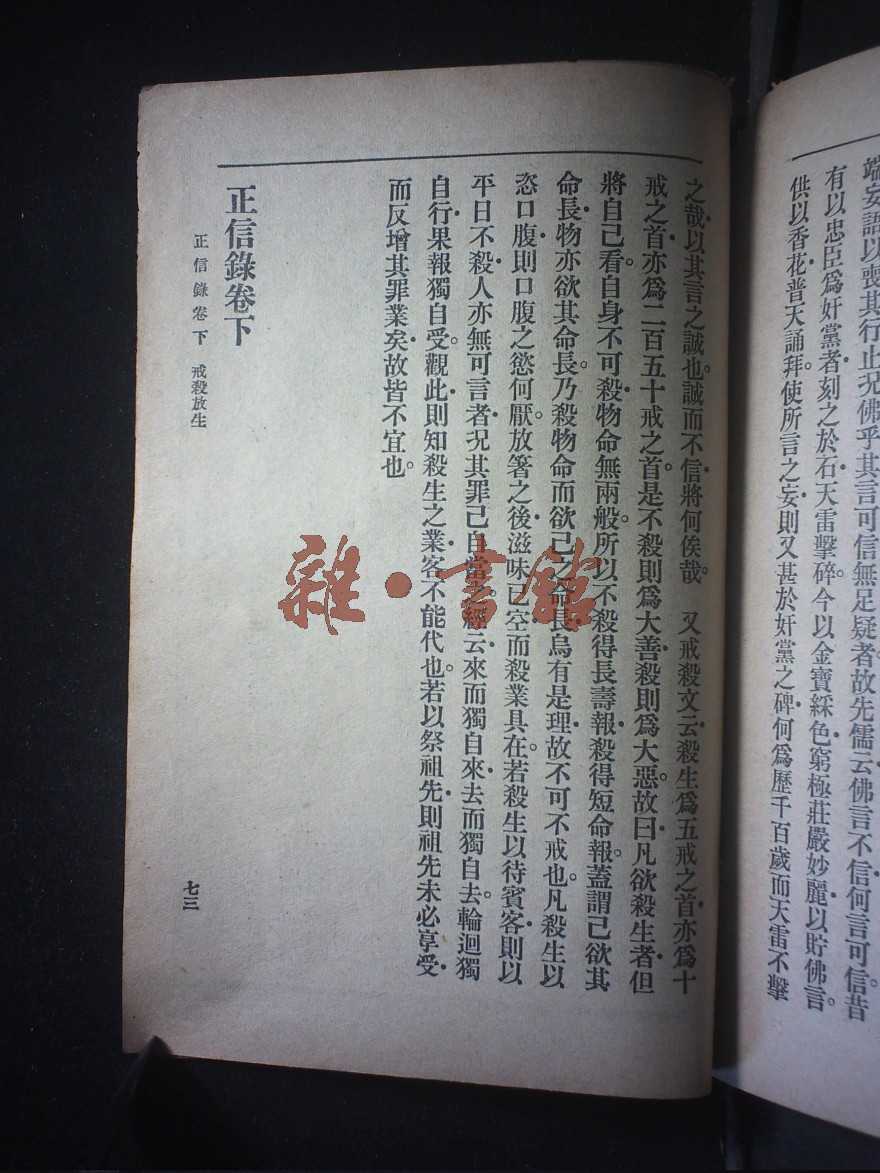 端妄語以喪其行止況佛乎其言可信無足疑者故先儒云佛言不信何言可信昔
有以忠臣爲奸黨者刻之於石天雷擊碎今以金寶綵色窮極莊嚴妙麗以貯佛言
供以香花普天誦拜使所言之妄則又甚於奸黨之碑何爲歷千百歲而天雷不擊
之哉以其言之誠也誠而不信將何俟哉 又戒殺文云殺生爲五戒之首亦爲十
戒之首亦爲二百五十戒之首是不殺則爲大善殺則爲大惡故曰凡欲殺生者但
將自己看自身不可殺物命無兩般所以不殺得長壽報殺得短命報蓋謂己欲其
命長物亦欲其命長乃殺物命而欲己之命長烏有是理故不可不戒也凡殺生以
恣口腹則口腹之慾何厭放箸之後滋味已空而殺業具在若殺生以待賓客則以
平日不殺人亦無可言者況其罪己自當之經云來而獨自來去而獨自去輪迴獨
自行果報獨自受觀此則知殺生之業客不能代也若以祭祖先則祖先未必享受
而反增其罪業矣故皆不宜也
正信錄卷下
正信錄卷下 戒殺放生
七三
雜·書館